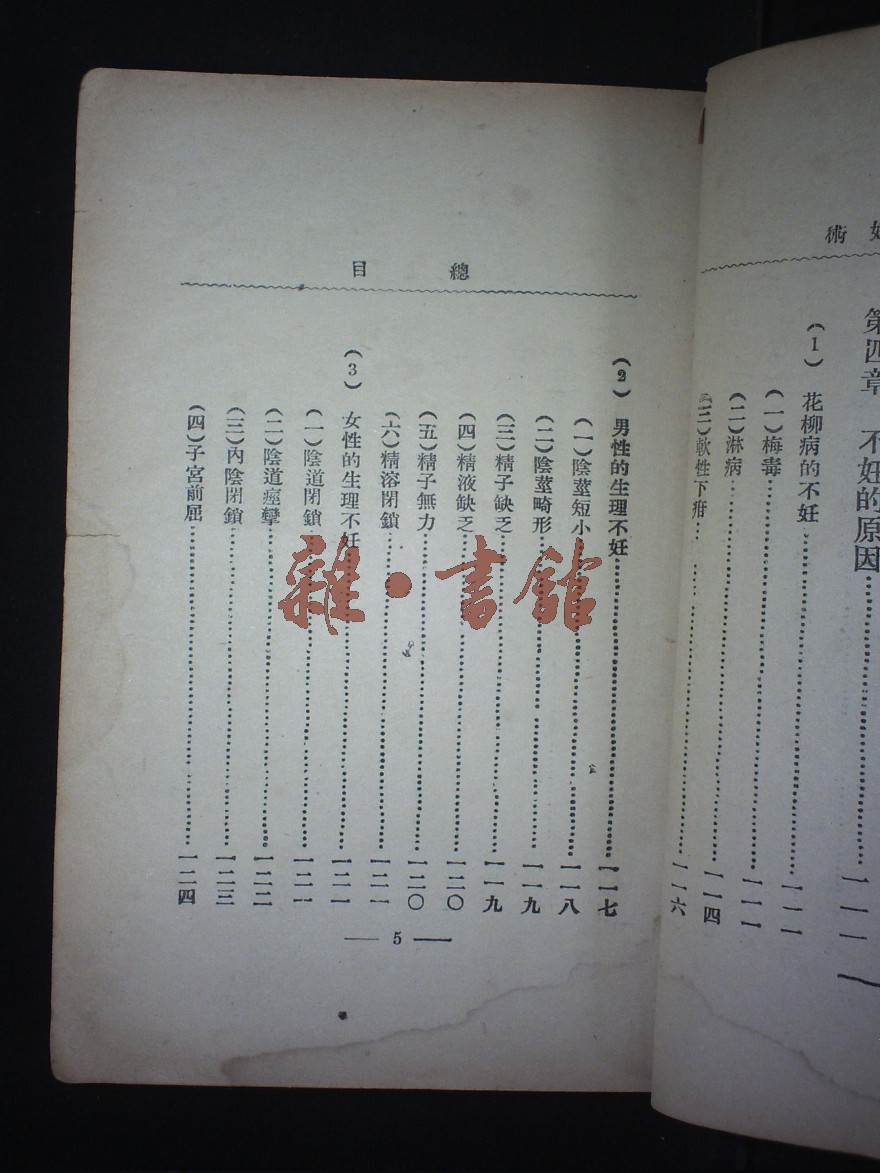 術
第四章 不妊的原因……………一一一
(1) 花柳病的不妊……………一一一
(一)梅毒……………一一一
(二)淋病……………一一四
(三)軟性下疳……………一一六
總目
(2) 男性的生理不妊……………一一七
(一)陰莖短小……………一一八
(二)陰莖畸形……………一一九
(三)精子缺乏……………一一九
(四)精液缺乏……………一二〇
(五)精子無力……………一二〇
(六)精溶閉鎖……………一二一
(3) 女性的生理不妊……………一二一
(一)陰道閉鎖……………一二一
(二)陰道痙攣……………一二二
(三)內陰閉鎖……………一二三
(四)子宮前屈……………一二四
— 5 —
雜·書館